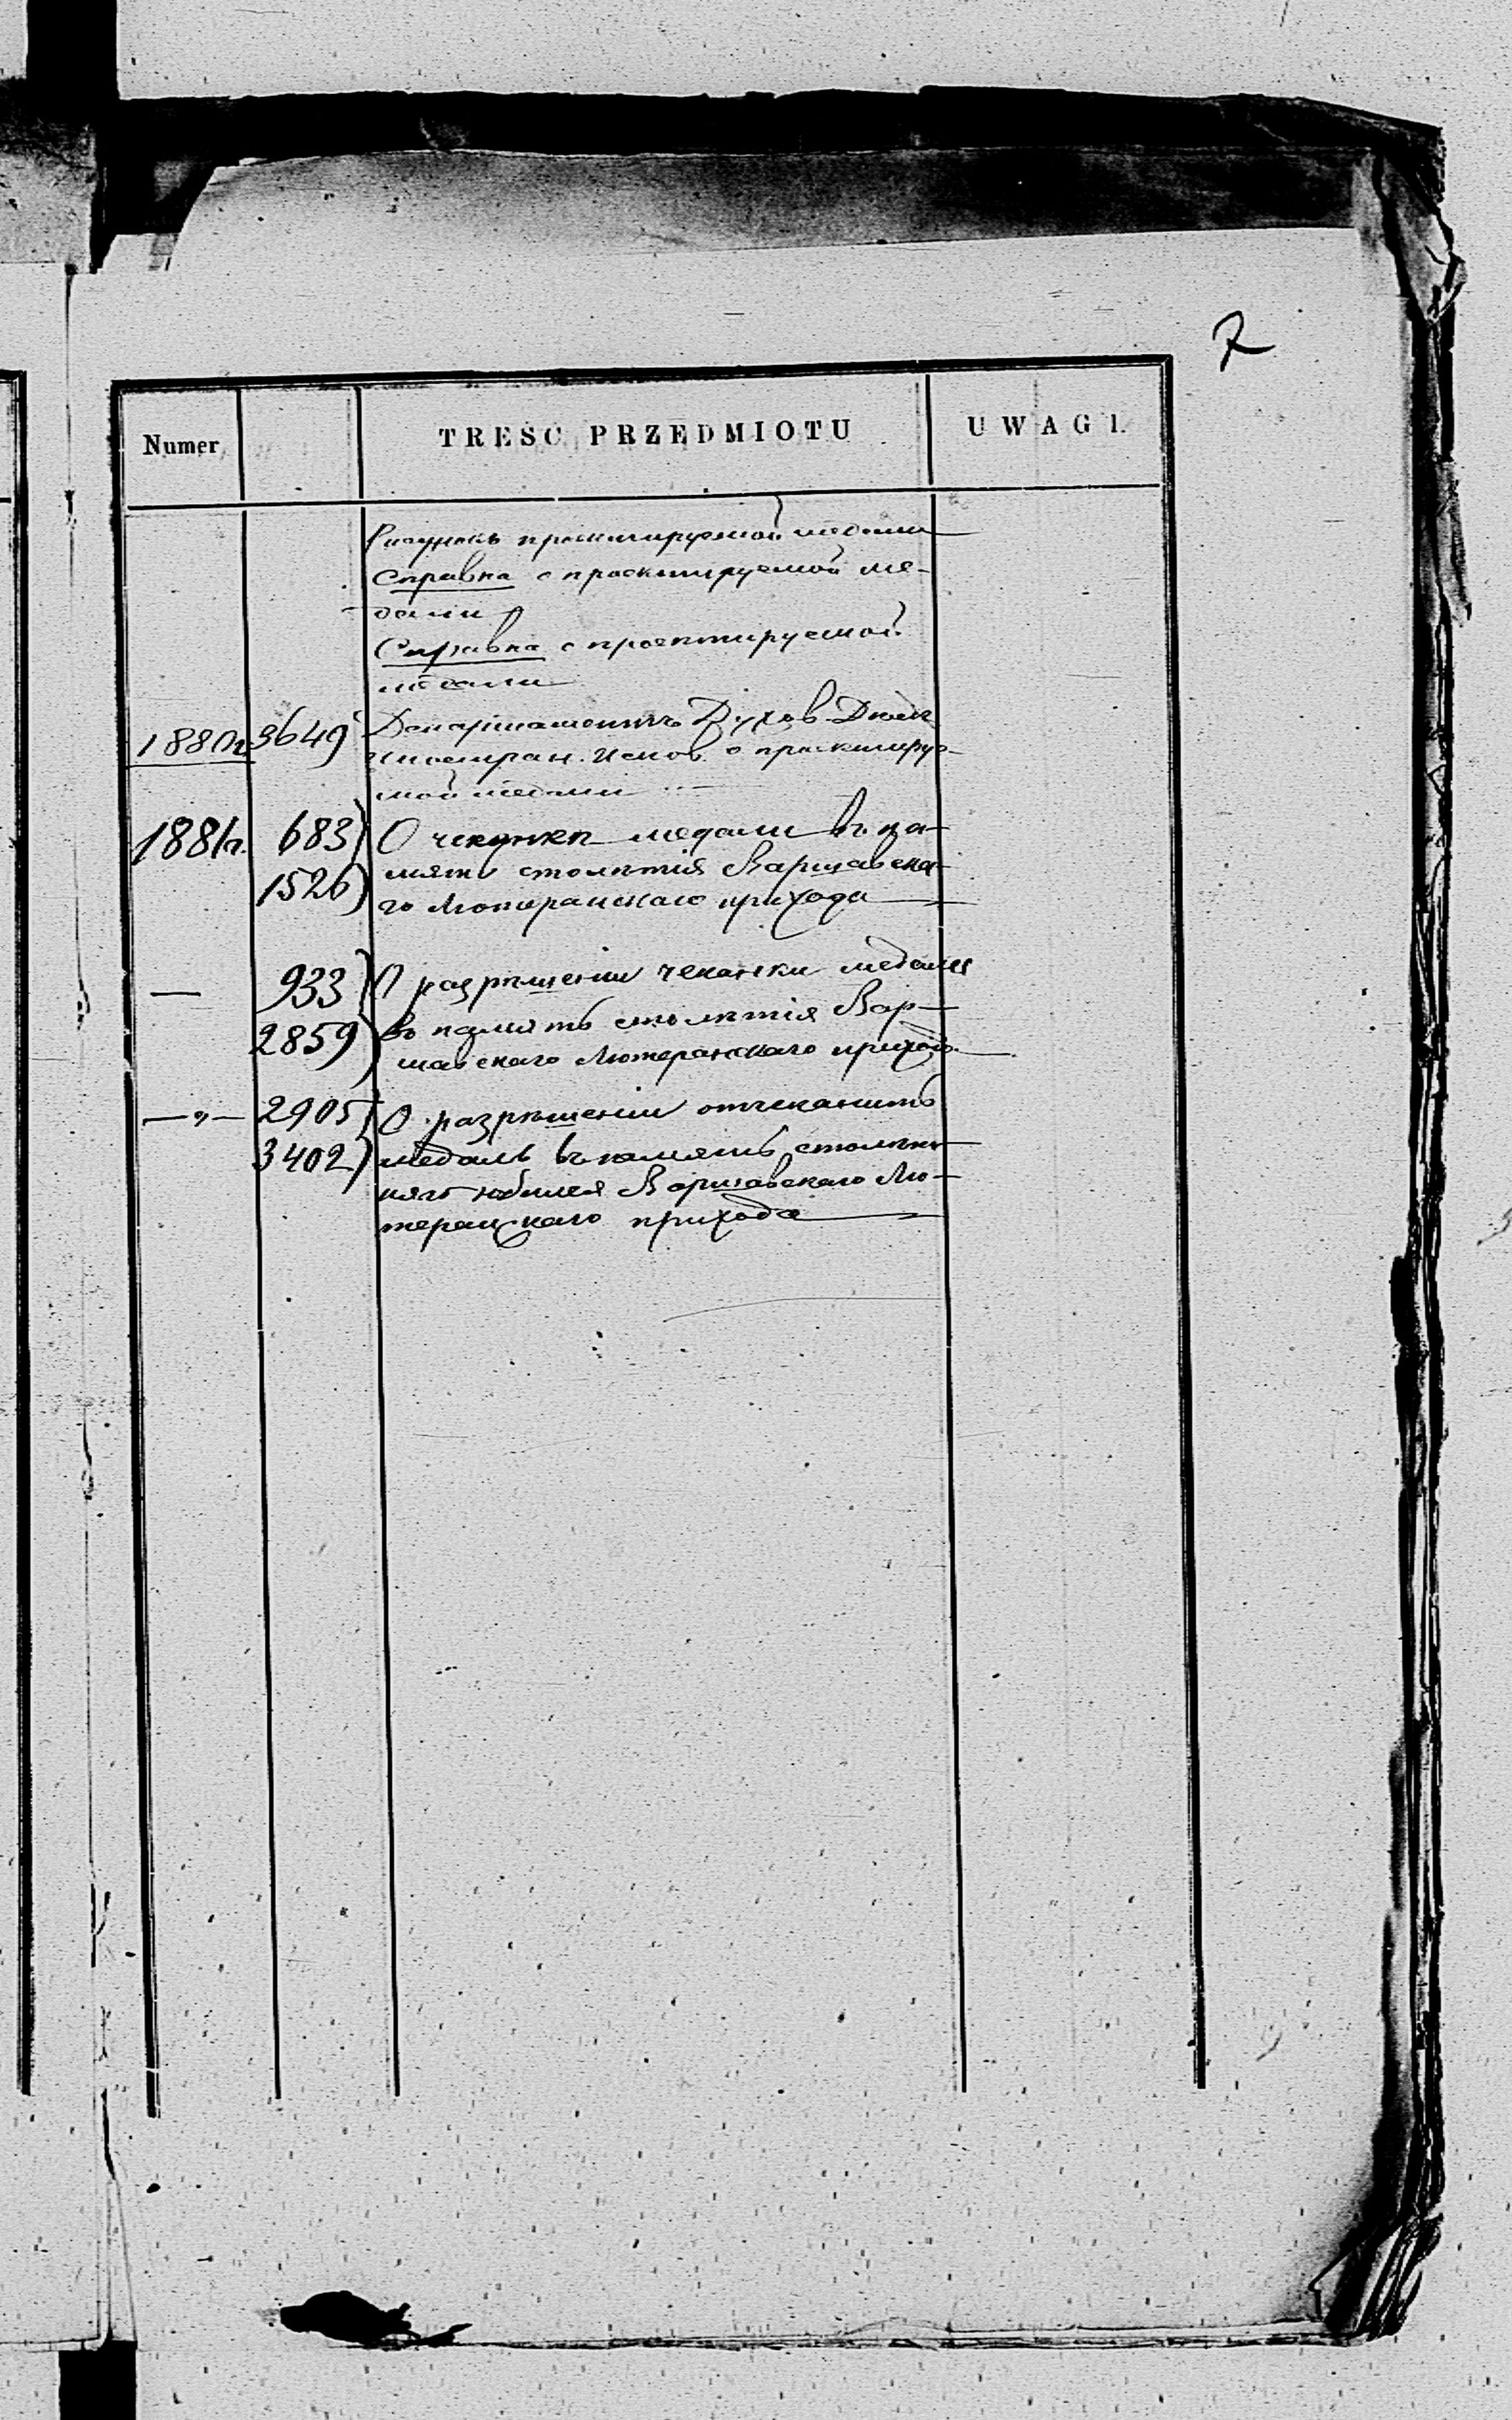 7
Numer
TREŚĆ PRZEDMIOTU
UWAGI.
Рисунокъ проектируемой медали
Справка о проектируемой ме-
дали
Справка о проектируемой
медали
1880г 3649 Департаментъ Духов. Делъ
Иностран. Испов. о проектируе-
мой медали
1881г. 683) О чеканкѣ медали въ па-
1526) мять столѣтія Варшавска-
го Лютеранскаго прихода
— 933) О разрѣшеніи чеканки медали
2859) въ память столѣтія Вар-
шавскаго Лютеранскаго прихода
—„— 2905) О разрѣшеніи отчеканить
3402) медаль въ память столѣт-
няго юбилея Варшавскаго Лю-
теранскаго прихода